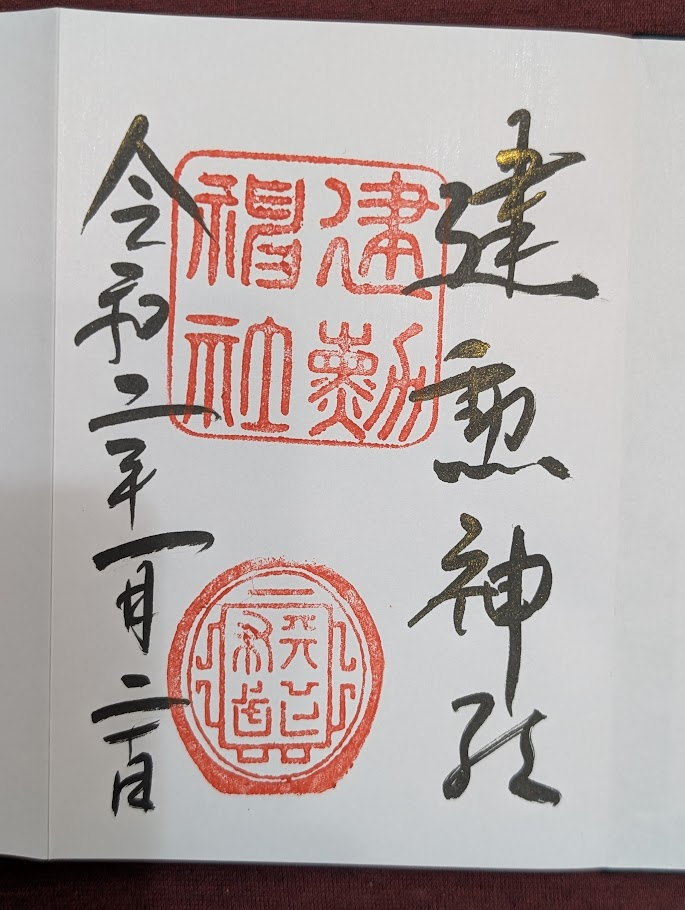 建勲神社
建勲
神社
令和二年一月